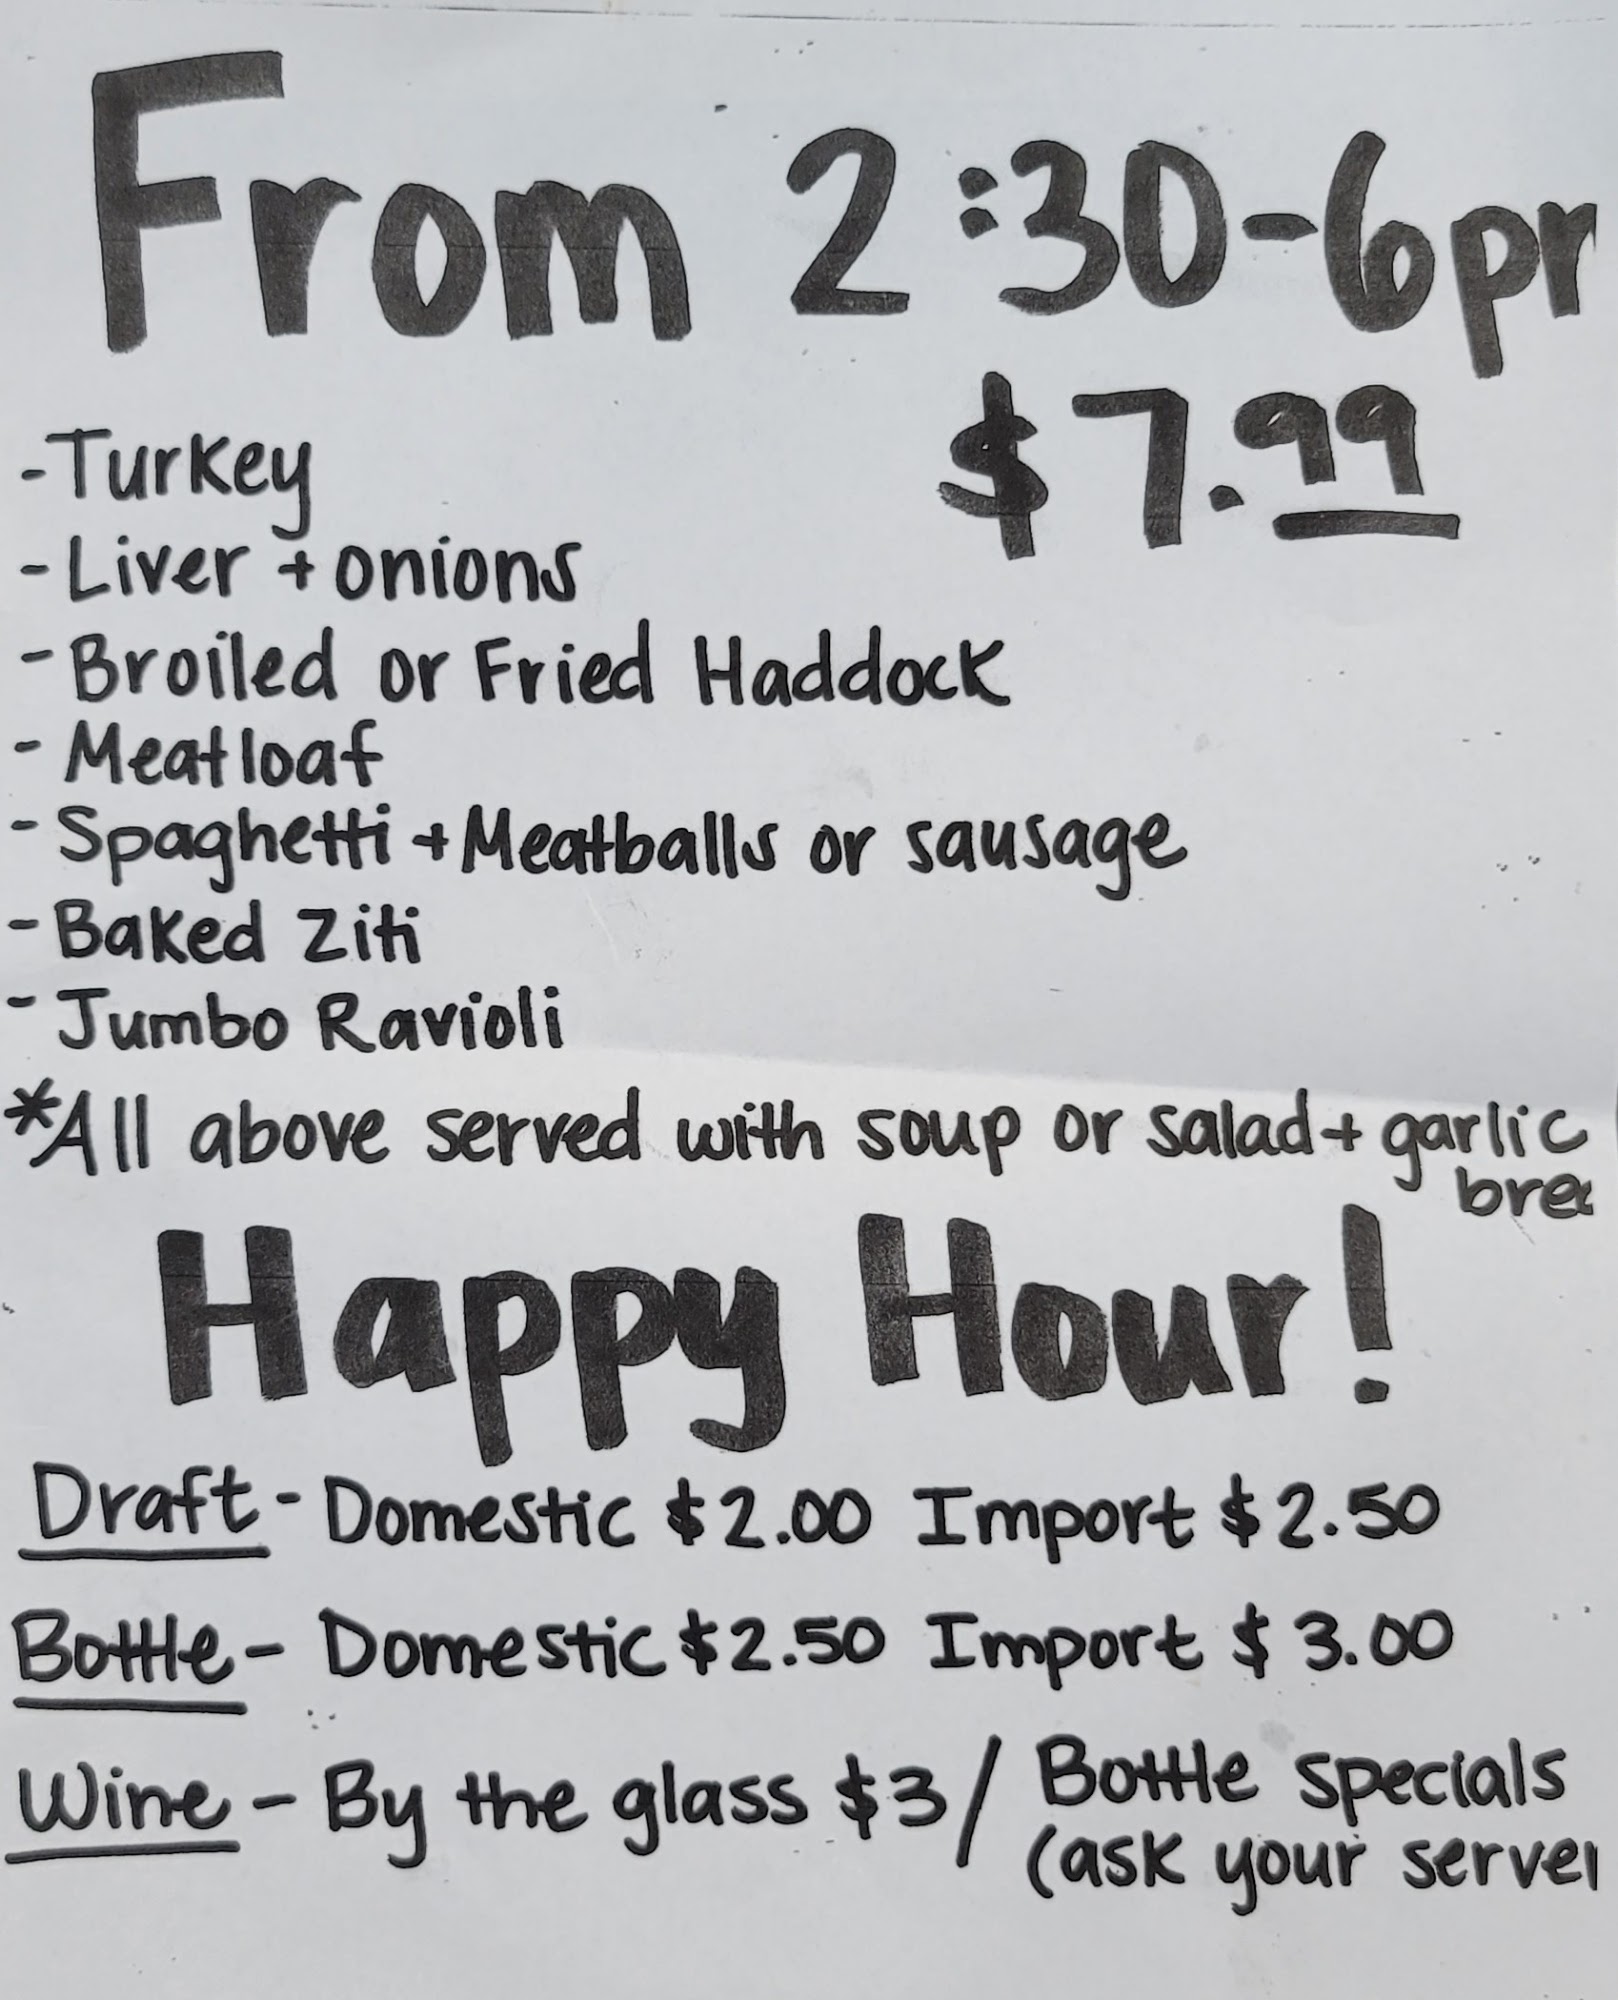 From 2:30-6pr
$7.99
- Turkey
- Liver + onions
- Broiled or Fried Haddock
- Meatloaf
- Spaghetti + Meatballs or sausage
- Baked Ziti
- Jumbo Ravioli
*All above served with soup or salad + garlic
brea
Happy Hour!
Draft - Domestic $2.00 Import $2.50
Bottle - Domestic $2.50 Import $3.00
Wine - By the glass $3/ Bottle specials
(ask your server